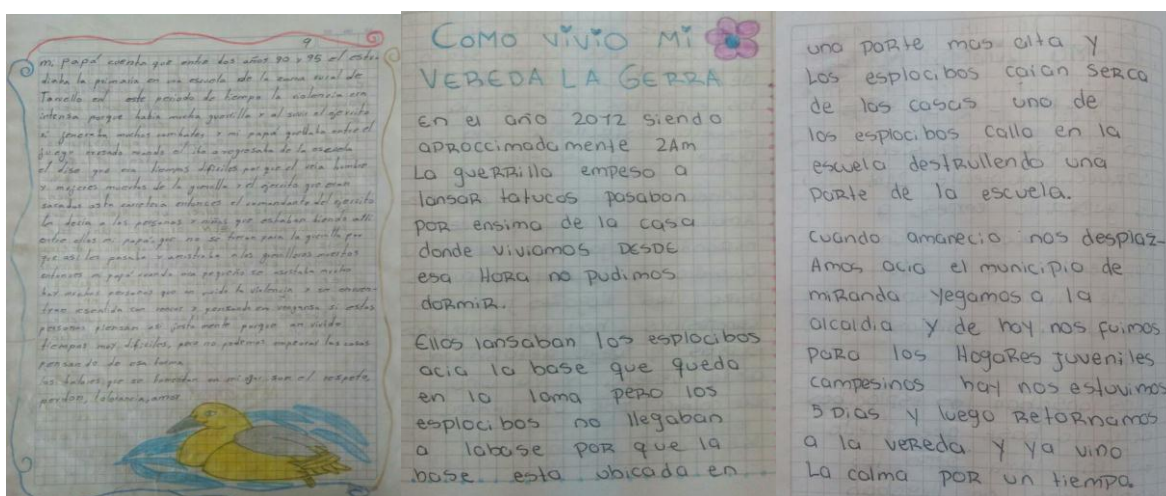 9
mi papá cuenta que entre los años 90 y 95 el estu
diaba la primaria en una escuela de la zona rural de
Toribio en este periodo de tiempo la violencia era
intensa porque había mucha guerrilla y al subir el ejercito
se generaba muchos combates, y mi papá quedaba entre el
fuego cruzado cuando el iba o regresaba de la escuela
el dise que era tiempos dificiles por que el veia hombres
y mujeres muertos de la guerrilla y el ejercito que eran
sacados asta carretera entonces el comandante del ejercito
le decia a las personas y niños que estaban biendo alli
entre ellos mi papá, que no se fueran para la guerrilla por
que asi les pasaba y amostraba a los guerrilleros muertos
entonces mi papá cuando era pequeño se asustaba mucho
hay muchas personas que an vivido la violencia y se encuen
tran con rencor y pensando en venganza si estas
personas piensan asi justamente porque an vivido
tiempos muy dificiles, pero no podemos empeorar las cosas
pensando de esa forma.
los valores que se fomentan en mi son el respeto,
perdon, tolerancia, amor.
COMO VIVIO MI
VEREDA LA GERRA
En el año 2012 siendo
aproccimadamente 2Am
La gueRRilla empeso a
lansaR tatucos pasabon
poR ensima de la casa
donde viviamos DESDE
esa HoRa no pudimos
doRmiR.
Ellos lansaban los esplocibos
acia la base que queda
en la loma peRo los
esplocibos no llegaban
a labase poR que la
base esta ubicada en
una paRte mas alta y
Los esplocibos caian seRca
de las casas uno de
los esplocibos callo en la
escuela destRullendo una
paRte de la escuela.
cuando amanecio nos desplaz-
Amos acia el municipio de
miRanda yegamos a la
alcaldia y de hay nos fuimos
paRa los HogaRes juveniles
campesinos hay nos estuvimos
5 Dias y luego RetoRnamos
a la veReda y ya vino
La calma poR un tiempo.